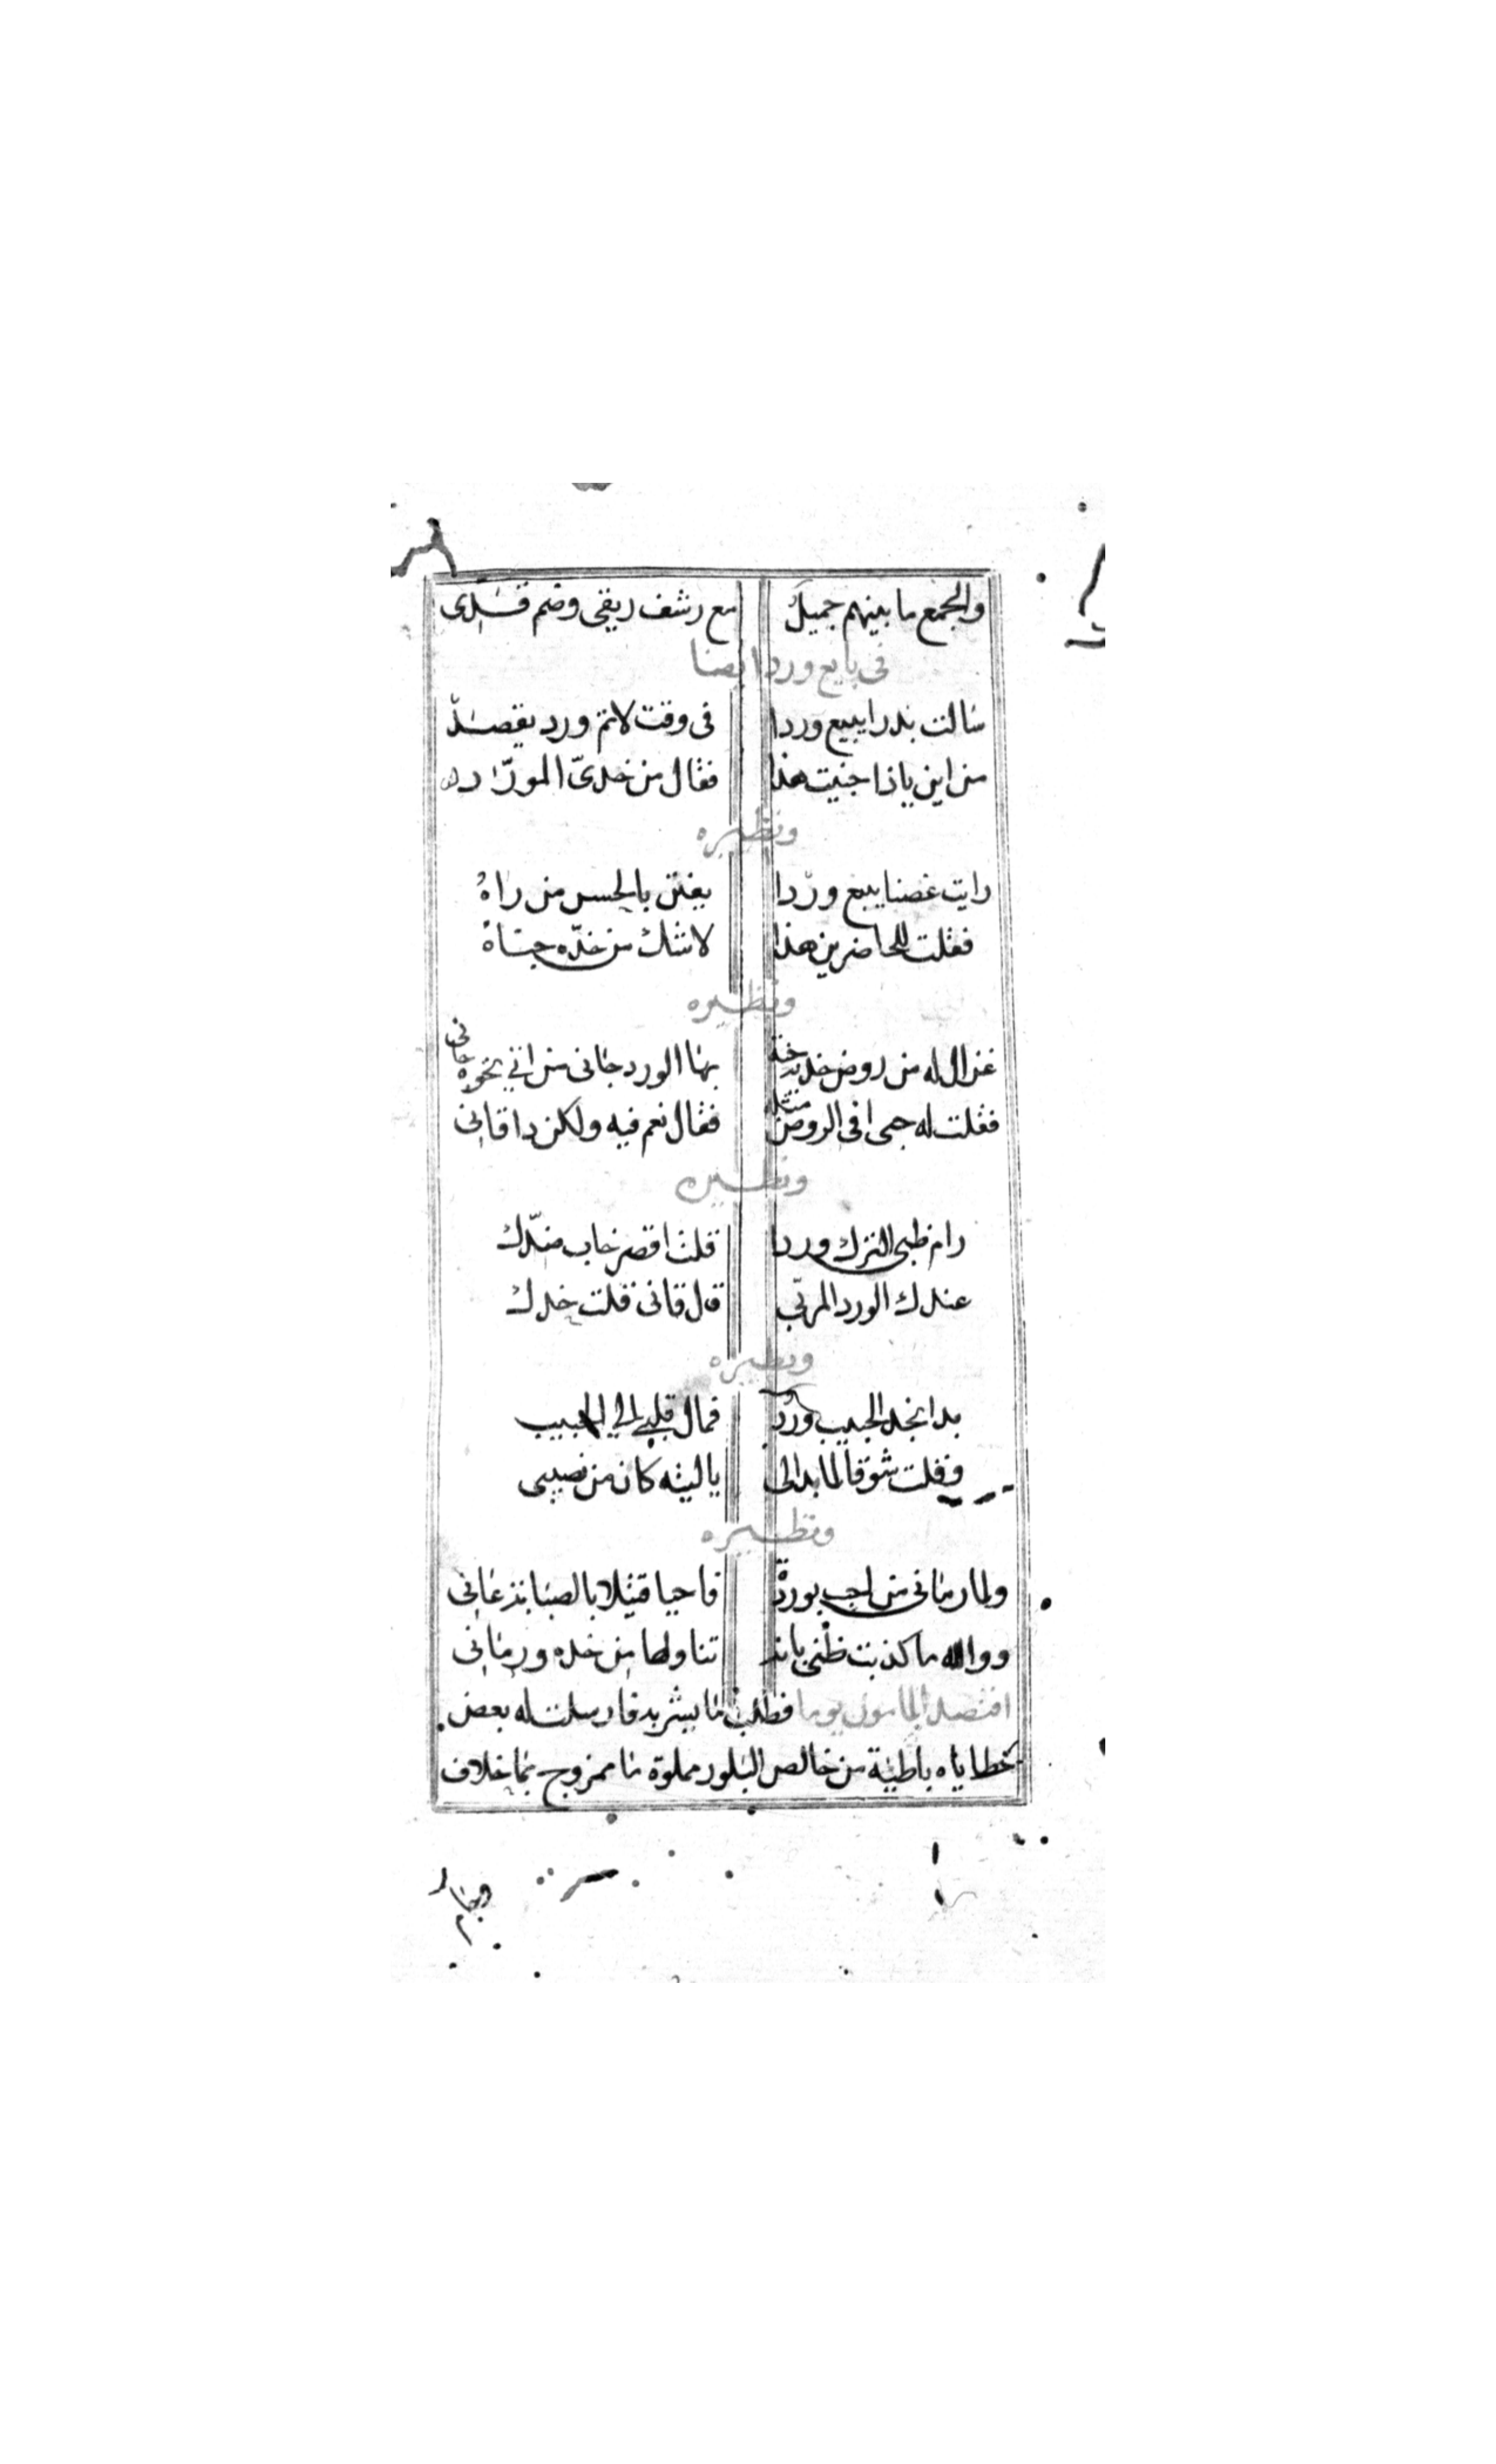 والجمع ما بينهم جميل مع رشف ريقي وضم قدى
فى بايع ورد ايضا
سالت بدرا يبيع وردا فى وقت لاثم ورد يقصد
من اين ياذا جنيت هذا فقال من خدىّ المورّد
ونظيره
رايت غصنا يبيع وردا يفتن بالحسن من راه
فقلت للحاضرين هذا لاشك من خدّه جناه
ونظيره
غزال له من روض خديه جنة بها الورد جانى من اتى نحوه جانى
فقلت له حمى افى الروض مثله فقال نعم فيه ولكن دا قانى
ونظيره
رام ظبى الترك وردا قلت اقصر خاب ضدّك
عندك الورد المربّى قال قانى قلت خدك
ونظيره
بدا بخد الحبيب ورد فمال قلبى الى الحبيب
وقلت شوقا لما بدا لى ياليته كان من نصيبى
ونظيره
ولما رمانى من احب بوردة فاحيا قتيلا بالصبابة عانى
ووالله ما كذبت ظنى بانه تناولها من خده ورمانى
افتصد المامون يوما فطلب ما يشربه فارسلت له بعض
خطاياه باطية من خالص البلور مملوة ما ممزوج بما خلاف